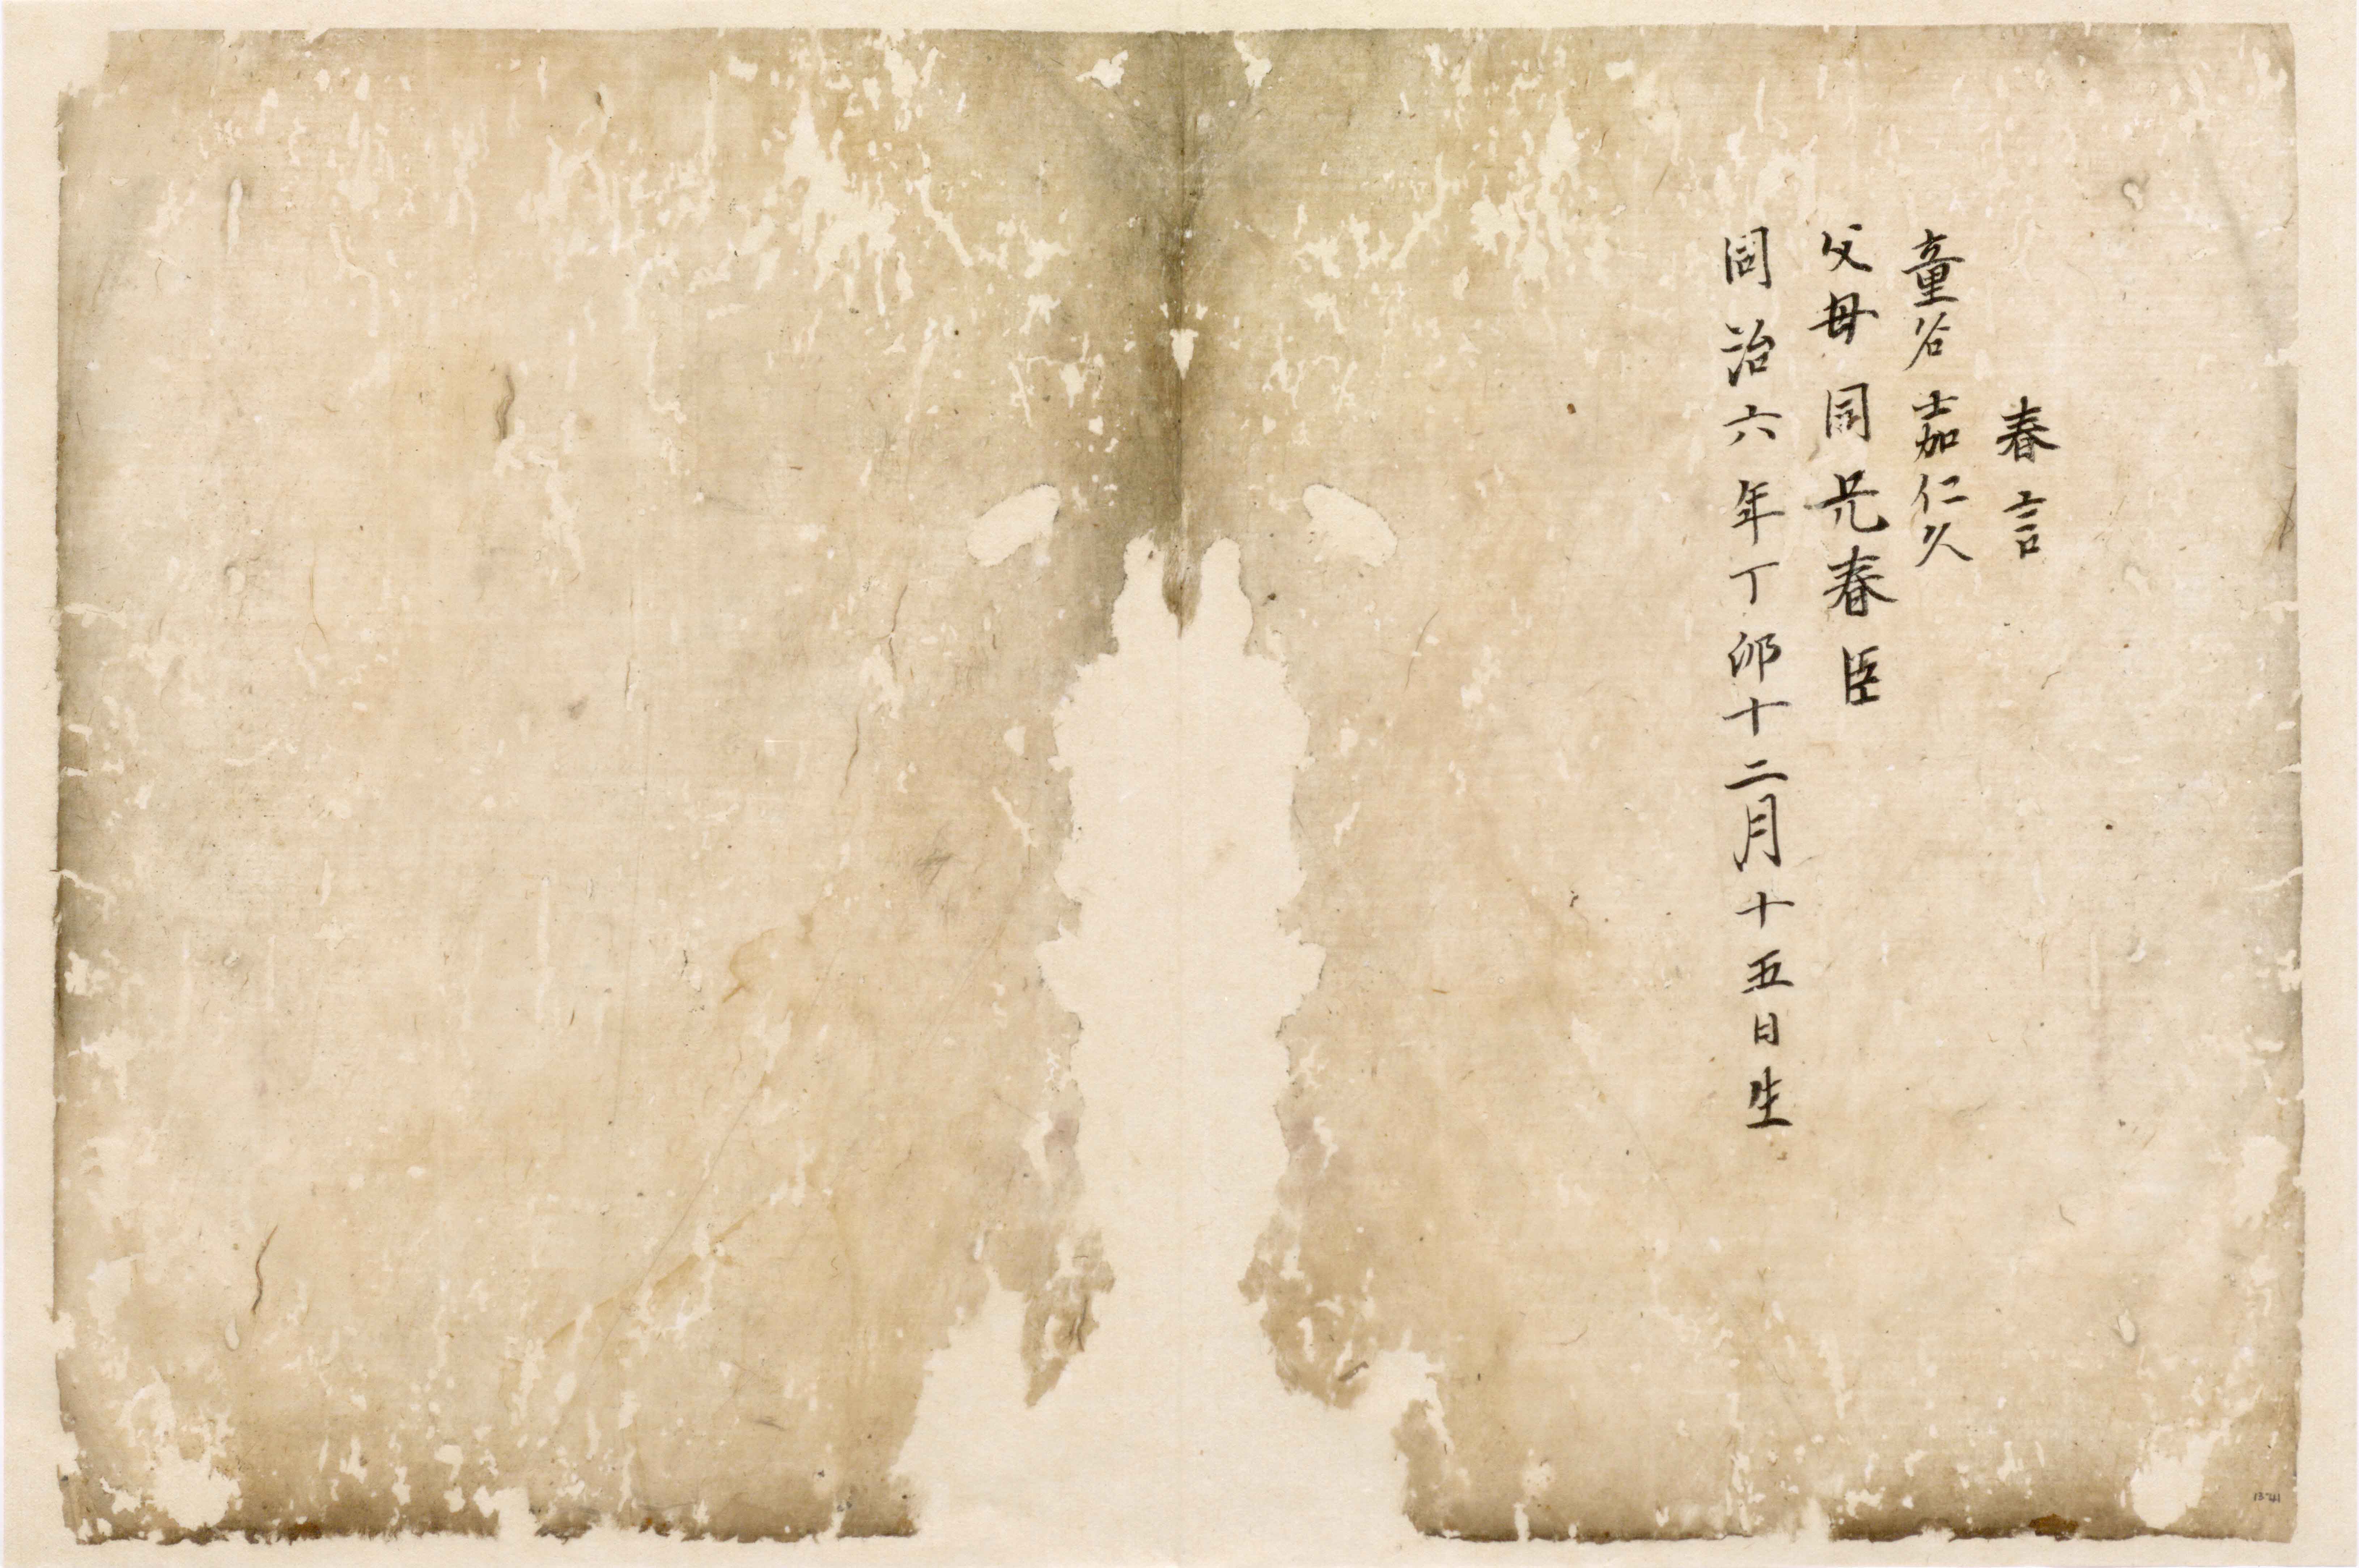 春言
童谷嘉仁久
父母同兄春臣
同治六年丁卯十二月十五日生
13-741